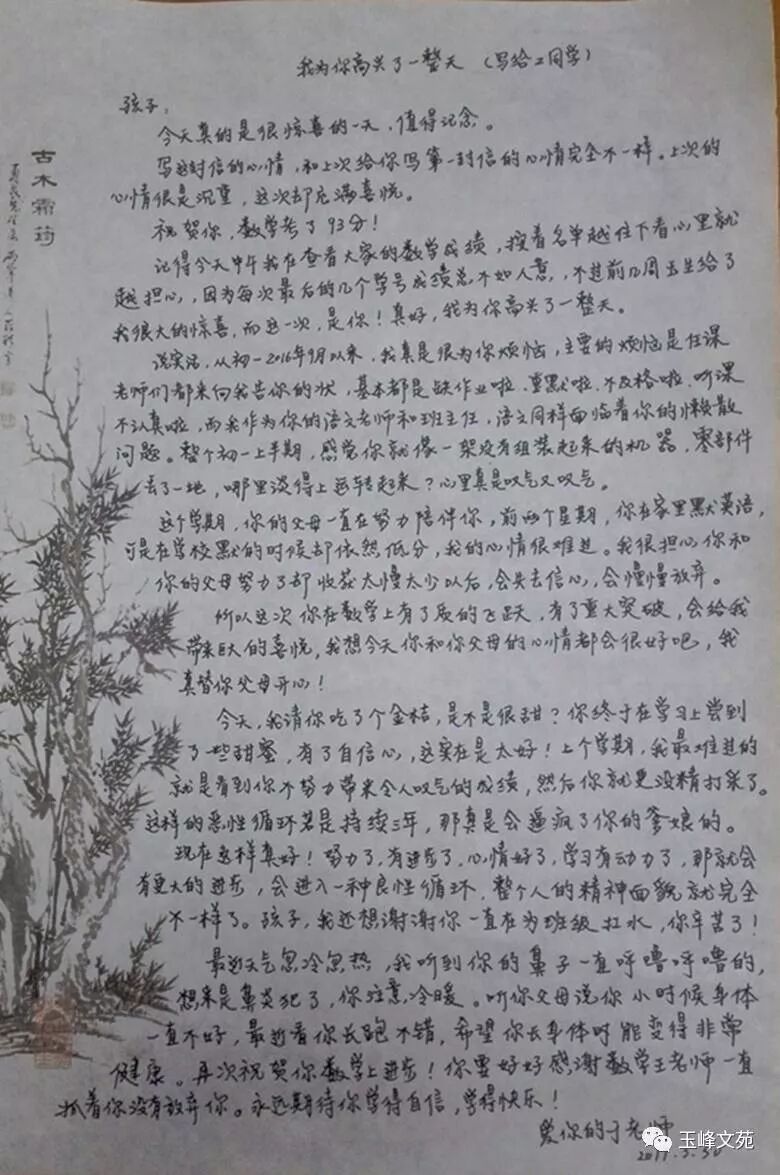 我为你高兴了一整天（写给Z同学）
孩子：
今天真的是很惊喜的一天，值得记念。
写这封信的心情，和上次给你写第一封信的心情完全不一样。上次的
心情很是沉重，这次却充满喜悦。
祝贺你，数学考了93分！
记得今天中午我在查看大家的数学成绩，按着名单越往下看心里就
越担心，因为每次最后的几个学号成绩总不如人意，不过前几周玉生给了
我很大的惊喜，而这一次，是你！真好，我为你高兴了一整天。
说实话，从初一2016年9月以来，我真是很为你烦恼，主要的烦恼是任课
老师们都来向我告你的状，基本都是缺作业啦、重默啦、不及格啦、听课
不认真啦，而我作为你的语文老师和班主任，语文同样面临着你的懒散
问题。整个初一上半期，感觉你就像一架没有组装起来的机器，零部件
丢了一地，哪里谈得上运转起来？心里真是叹气又叹气。
这个学期，你的父母一直在努力陪伴你，前两个星期，你在家里默英语，
可是在学校默的时候却依然低分，我的心情很难过。我很担心你和
你的父母努力了却收获太慢太少以后，会失去信心，会慢慢放弃。
所以这次你在数学上有了质的飞跃，有了重大突破，会给我
带来巨大的喜悦，我想今天你和你父母的心情都会很好吧，我
真替你父母开心！
今天，我请你吃了个金桔，是不是很甜？你终于在学习上尝到
了一些甜蜜，有了自信心，这实在是太好！上个学期，我最难过的
就是看到你不努力带来令人叹气的成绩，然后你就更没精打采了。
这样的恶性循环若是持续三年，那真是会逼疯了你的爹娘的。
现在这样真好！努力了，有进步了，心情好了，学习有动力了，那就会
有更大的进步，会进入一种良性循环，整个人的精神面貌就完全
不一样了。孩子，我还想谢谢你一直在为班级扛水，你辛苦了！
最近天气忽冷忽热，我听到你的鼻子一直呼噜呼噜的，
想来是鼻炎犯了，你注意冷暖。听你父母说你小时候身体
一直不好，最近看你长跑不错，希望你长身体时能变得非常
健康。再次祝贺你数学上进步！你要好好感谢数学王老师一直
抓着你没有放弃你。永远期待你学得自信，学得快乐！
爱你的于老师
2017.3.30
古木霜筠
玉峰文苑